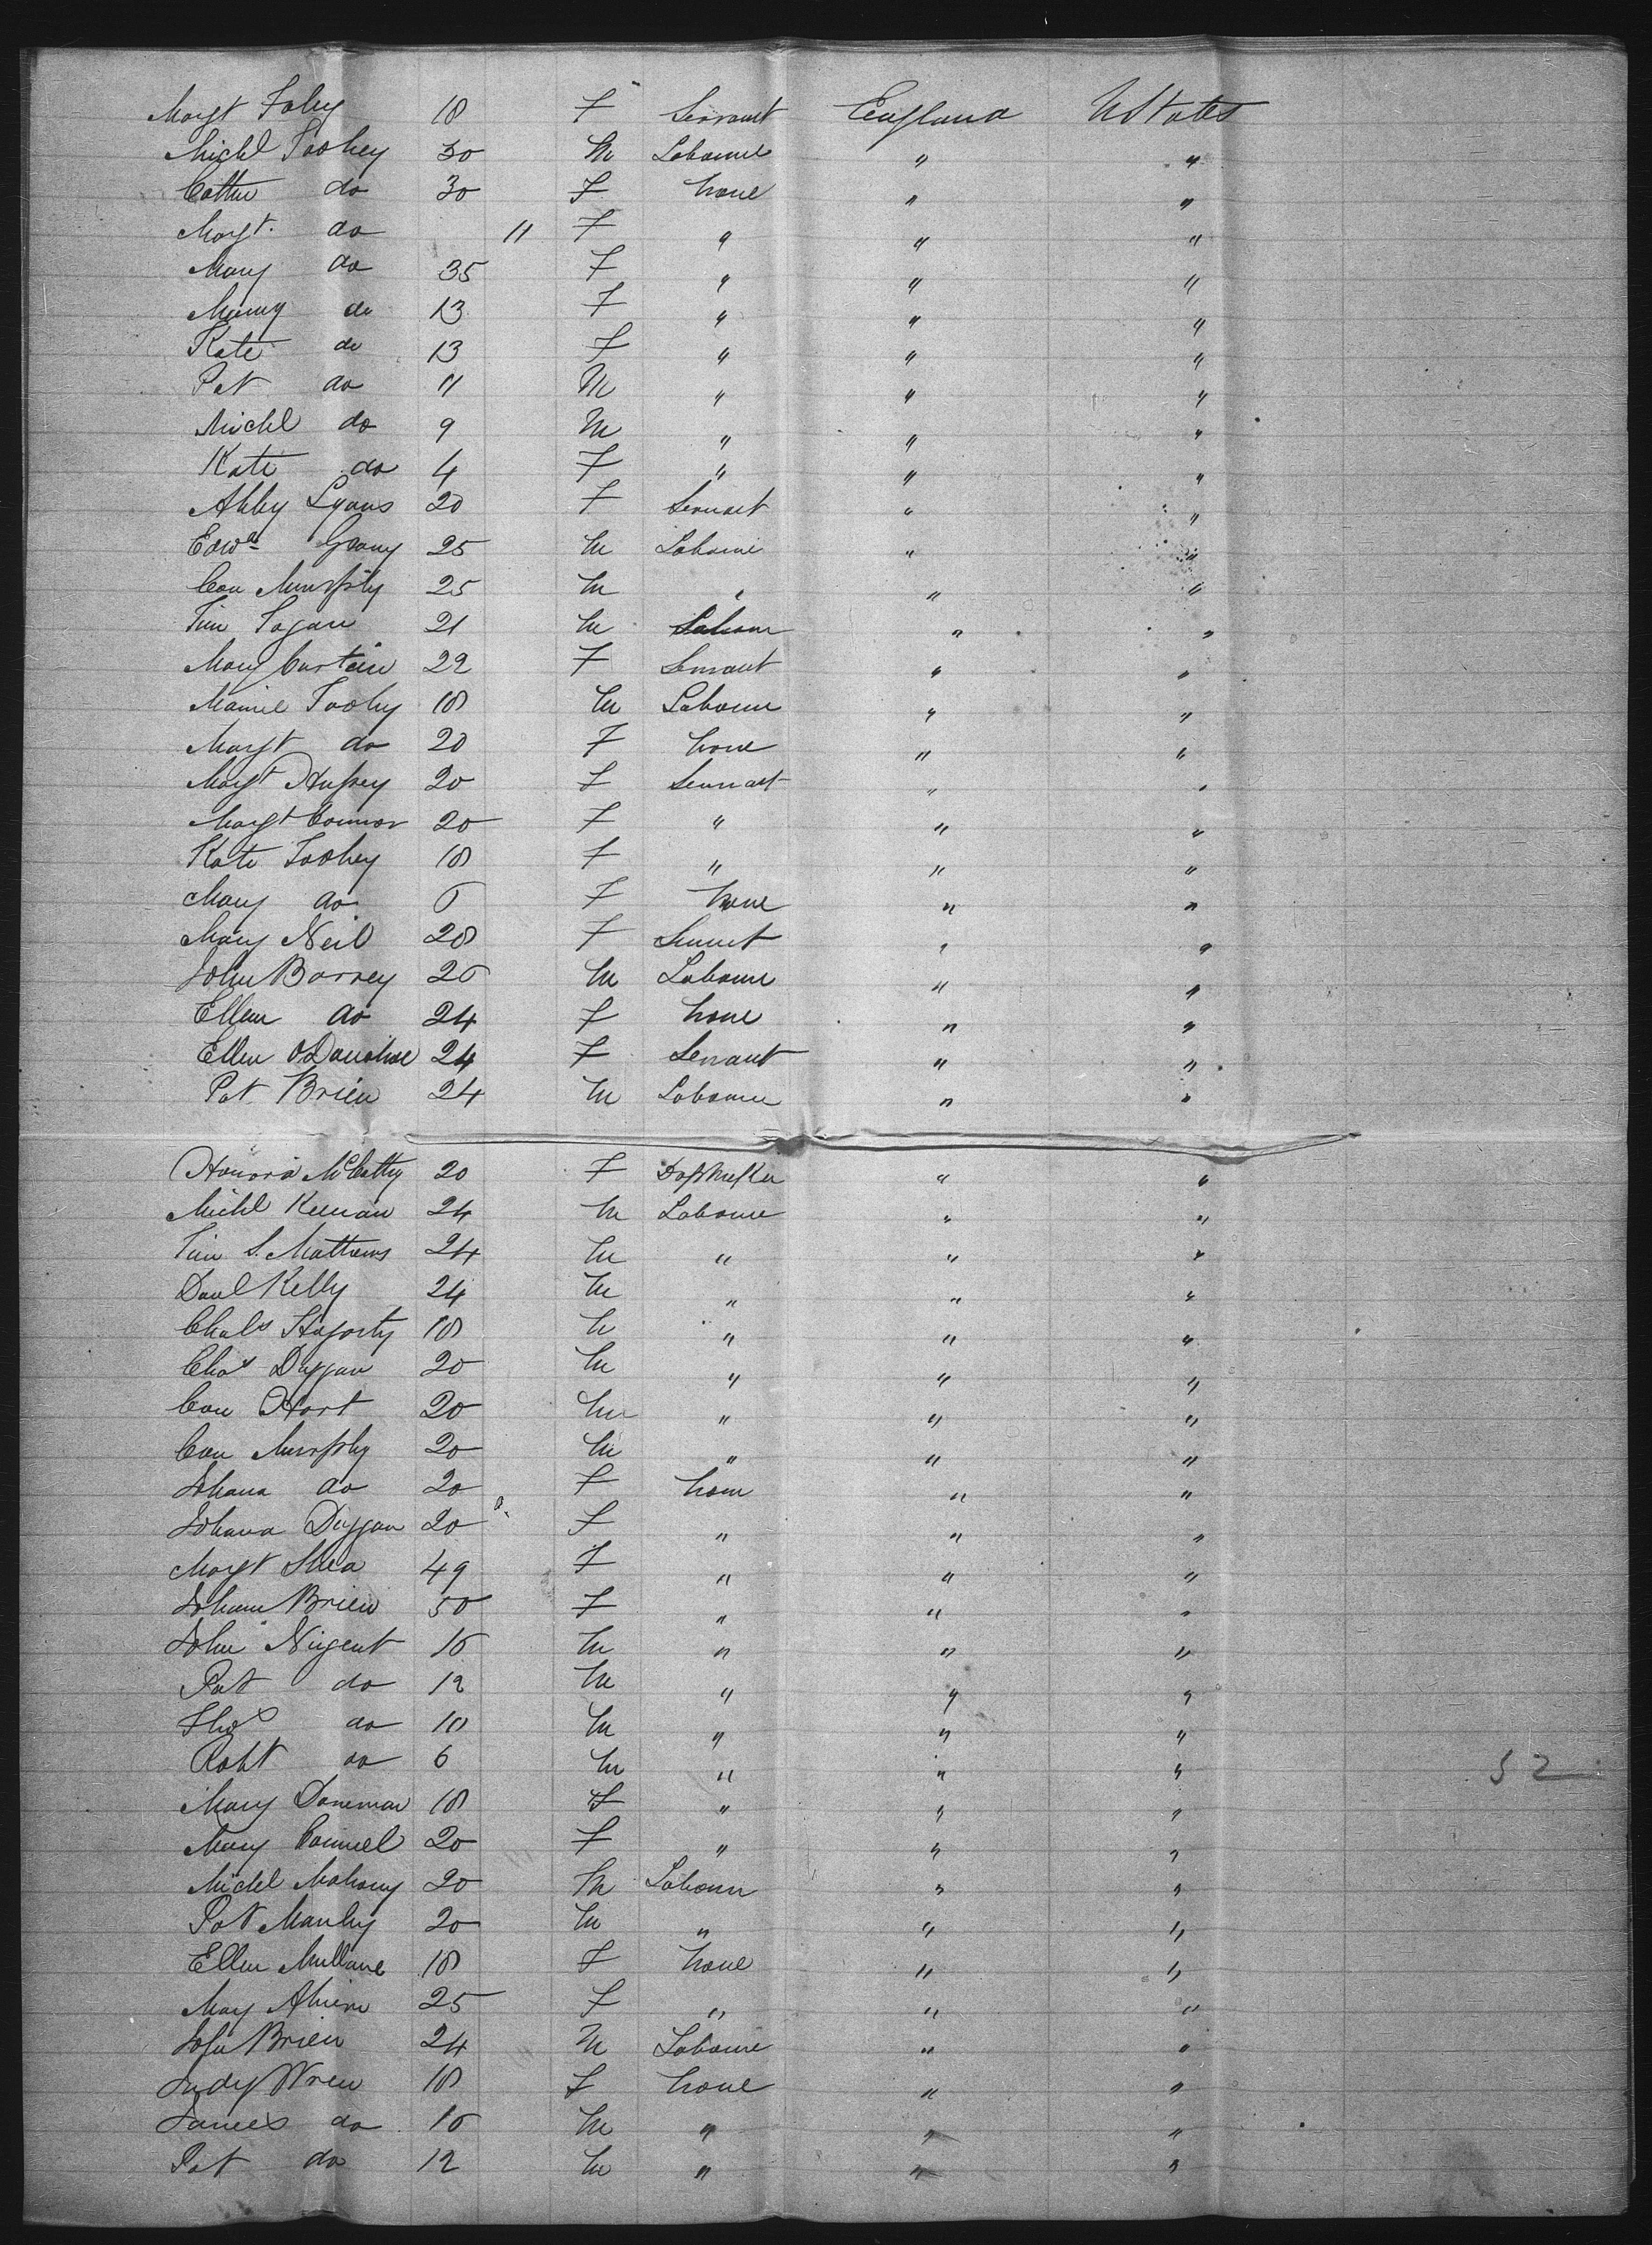 Margt Foley 18 F Servant England UStates
Michl Toohey 30 M Labourer " "
Cathe do 30 F None " "
Margt. do 11 F " " "
Mary do 35 F " " "
do 13 F " " "
Kate do 13 F " " "
Pat do 11 M " " "
Michl do 9 M " " "
Kate do 4 F " " "
Abby Lyons 20 F Servant " "
Edwd 25 M Labourer " "
Con Murphy 25 M " " "
Tim Fagan 21 M Labourer " "
Mary Curtain 22 F Servant " "
Toohy 18 M Labourer " "
Margt do 20 F None " "
Margt Hussey 20 F Servant " "
Margt Connor 20 F " " "
Kate Toohey 18 F " " "
Mary do F None " "
Mary Neil 28 F Servant " "
John Barrey 26 M Labourer " "
Ellen do 24 F None " "
Ellen O'Donohoe 24 F Servant " "
Pat Brien 24 M Labourer " "
Honora McCathy 20 F " "
Michl Keenan 24 M Labourer " "
Tim S. Mathews 24 M " " "
Danl Kelly 24 M " " "
Chals Hagarty 18 M " " "
Chas Duggan 20 M " " "
Con Hart 20 M " " "
Con Murphy 20 M " " "
Johana do 20 F None " "
Johana Duggan 20 F " " "
Margt Shea 49 F " " "
Johana Brien 50 F " " "
John Nugent 16 M " " "
Pat do 12 M " " "
Thos do 10 M " " "
Robt do 6 M " " "
52
Mary 18 F " " "
Mary Connell 20 F " " "
Michl Mahony 20 M Labourer " "
Pat Manley 20 M " " "
Ellen Mullane 18 F None " "
May Ahern 25 F " " "
John Brien 24 M Labourer " "
Judy Wren 18 F None " "
James do 16 M " " "
Pat do 12 M " " "